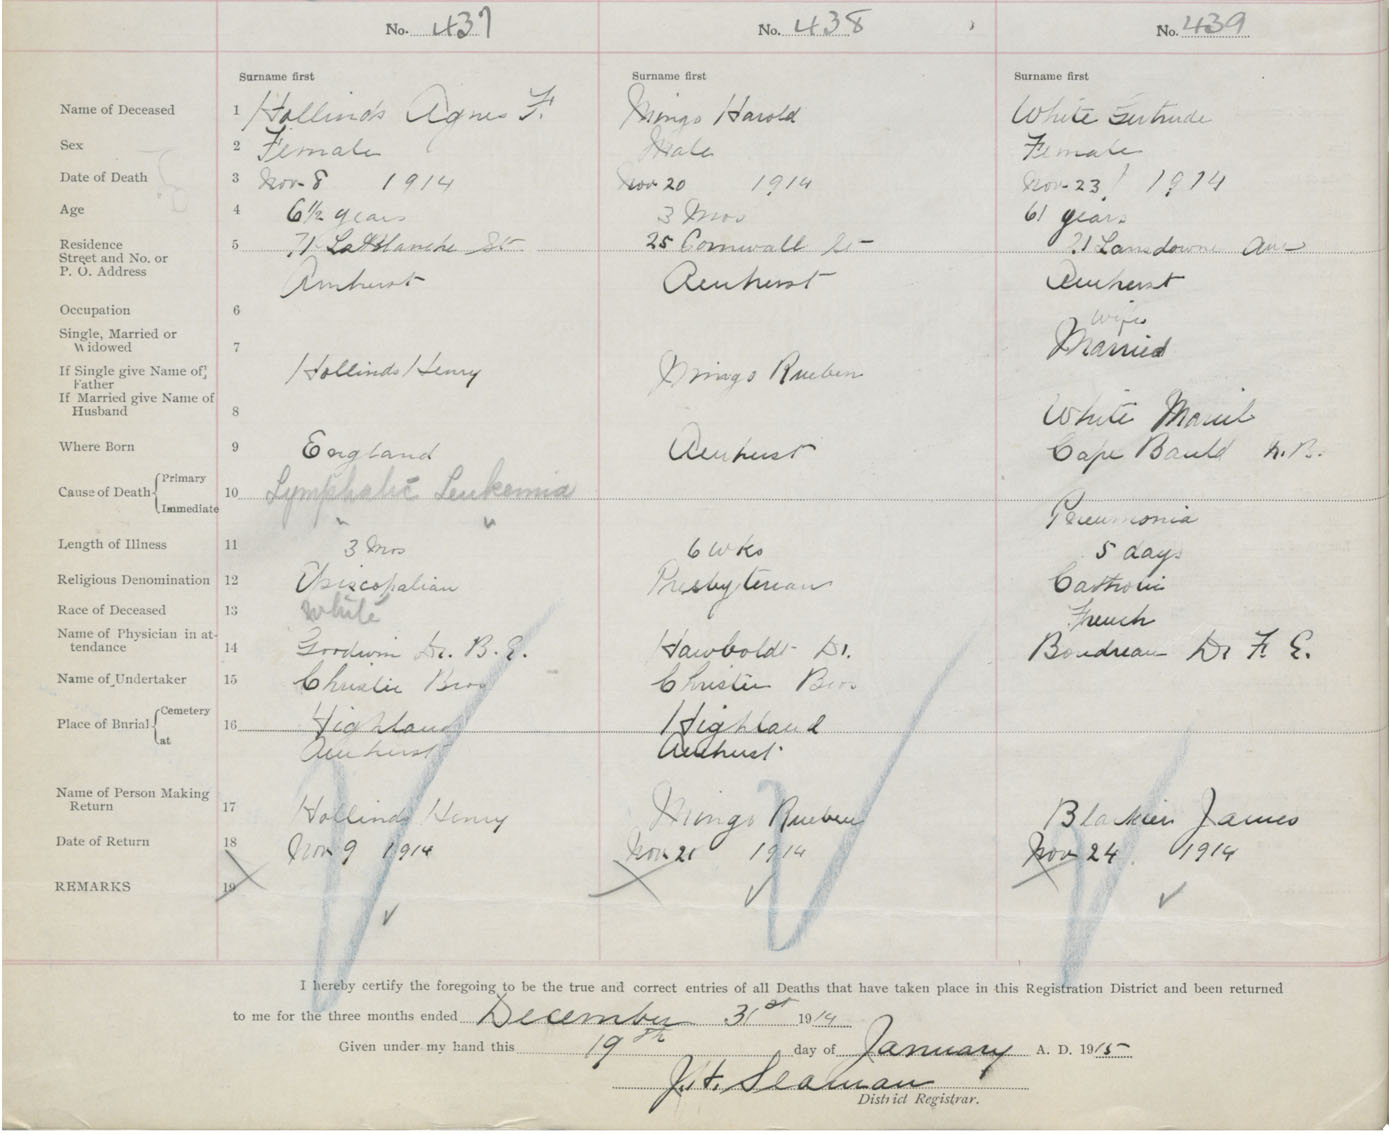 No. 437 No. 438 No. 439
Surname first Surname first Surname first
Name of Deceased 1 Hollinds Agnes F. Mingo Harold White Gertrude
Sex 2 Female Male Female
Date of Death 3 Nov 8 1914 Nov 20 1914 Nov 23 1914
Age 4 6½ years 3 Mos 61 years
Residence 5 71 LaPlanche St 25 Cornwall St 21 Lansdowne Ave
Street and No. or
P. O. Address Amherst Amherst Amherst
Occupation 6 wife
Single, Married or
Widowed 7 Married
If Single give Name of
Father Hollinds Henry Mingo Rueben
If Married give Name of
Husband 8 White
Where Born 9 England Amherst Cape Bauld N.B.
Cause of Death Primary 10 Lymphatic Leukemia
Immediate " " Pneumonia
Length of Illness 11 3 Mos 6 wks 5 days
Religious Denomination 12 Episcopalian Presbyterian Catholic
Race of Deceased 13 White French
Name of Physician in at-
tendance 14 Goodwin Dr. B. E. Hawboldt Dr. Boudreau Dr F. E.
Name of Undertaker 15 Christie Bros Christie Bros
Place of Burial Cemetery 16 Highland Highland
at Amherst Amherst
Name of Person Making
Return 17 Hollinds Henry Mingo Rueben James
Date of Return 18 Nov 9 1914 Nov 21 1914 Nov 24 1914
REMARKS 19
I hereby certify the foregoing to be the true and correct entries of all Deaths that have taken place in this Registration District and been returned
to me for the three months ended December 31st 1914
Given under my hand this 19th day of January A. D. 1915
J. H. Seaman
District Registrar.